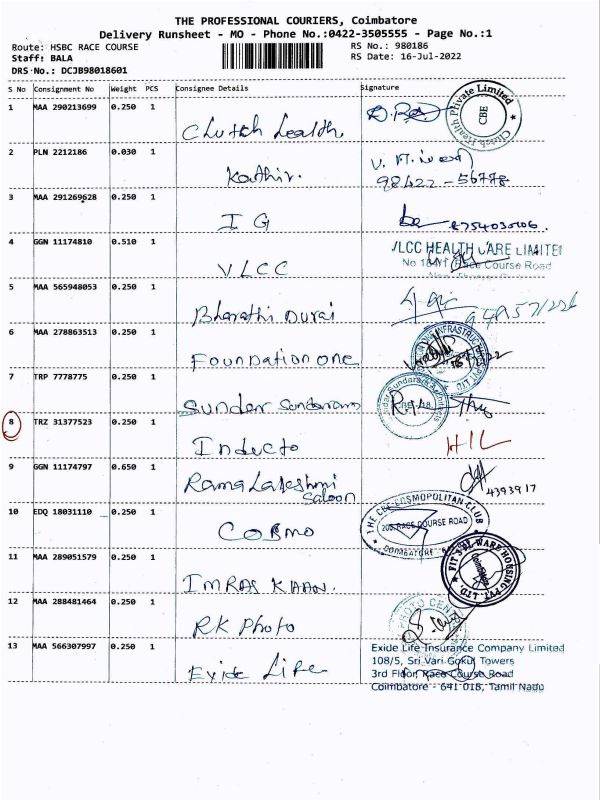 THE PROFESSIONAL COURIERS, Coimbatore
Delivery Runsheet - MO - Phone No.:0422-3505555 - Page No.:1
Route: HSBC RACE COURSE
RS No.: 980186
Staff: BALA
RS Date: 16-Jul-2022
DRS No.: DCJB98018601
S No Consignment No Weight PCS Consignee Details Signature
1 MAA 290213699 0.250 1
Clutch Health
Clutch Health Private Limited
CBE
2 PLN 2212186 0.030 1
Kathir.
98422-56778
3 MAA 291269628 0.250 1
I G
4 GGN 11174810 0.510 1
VLCC
VLCC HEALTH CARE LIMITED
Race Course Road
5 MAA 565948053 0.250 1
Bharathi Durai
6 MAA 278863513 0.250 1
Foundation one
7 TRP 7778775 0.250 1
Sunder Sundaram
8 TRZ 31377523 0.250 1
Inducto
HIL
9 GGN 11174797 0.650 1
Rama Lakshmi
Saloon
4393917
10 EDQ 18031110 0.250 1
Cosmo
THE CBE COSMOPOLITAN CLUB
205, RACE COURSE ROAD
COIMBATORE
11 MAA 289051579 0.250 1
IMRAS KHAN.
12 MAA 288481464 0.250 1
RK Photo
PHOTO
13 MAA 566307997 0.250 1
Exide Life
Exide Life Insurance Company Limited
108/5, Sri Vari Gokul Towers
3rd Floor, Race Course Road
Coimbatore - 641 018, Tamil Nadu